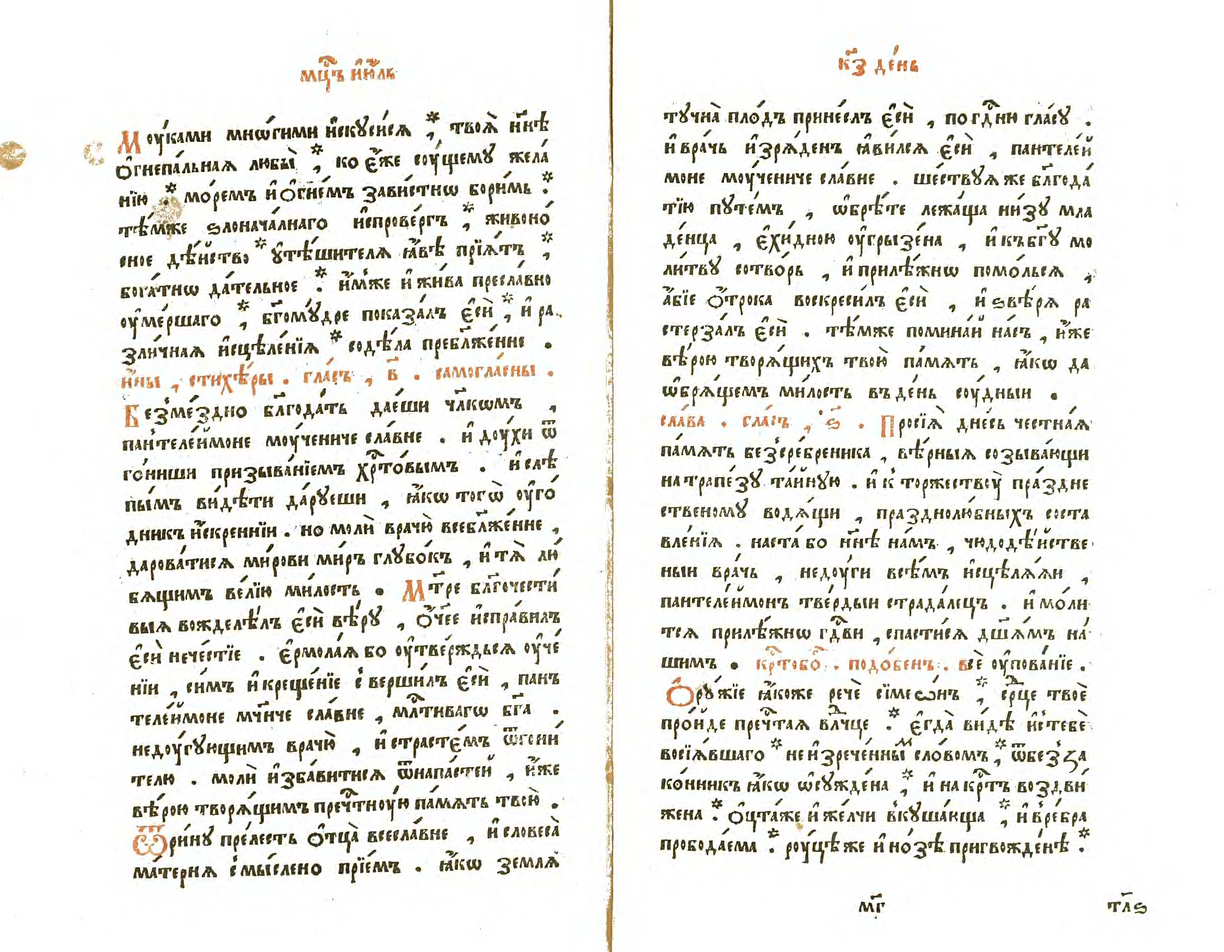 мц҃ъ і҆ю҆́ль
Моу́ками мно́гими и҆скꙋси́сѧ ,* твоѧ̀ нн҃ѣ
ѻ҆гнепа́льнаѧ любы̀ ,* ко є҆́же соу́щемꙋ жела́
нїю .* мо́ремъ и҆ ѻ҆гне́мъ зави́стнѡ бори́мь .*
тѣ́мже ѕлонача́лнаго и҆спрове́ргъ ,* живоно́
сное дѣ́йство * ᲂу҆тѣ́шителѧ ꙗ҆́вѣ прїѧ́тъ ,*
бога́тнѡ да́тельное .* и҆́мже и҆ жи́ва пресла́вно
ᲂу҆ме́ршаго ,* бг҃омꙋ́дре показа́лъ є҆сѝ ,* и҆ ра
зли́чнаѧ и҆сцѣле́нїѧ * содѣ́ла пребл҃же́нне .
и҆́ны , стихѣ́ры . гла́съ , в҃ . самогла́сны .
Безме́здно бл҃года́ть дае́ши чл҃кѡмъ ,
пантелеи́моне моу́чениче сла́вне . и҆ дꙋ́хи ѿ
го́ниши призыва́нїемъ хрⷭ҇то́вымъ . и҆ слѣ
пы́мъ ви́дѣти да́рꙋеши , ꙗ҆́кѡ тогѡ̀ ᲂу҆го́
дникъ и҆́скреннїи . но молѝ врачю̀ всебл҃же́нне ,
дарова́тисѧ ми́рови ми́ръ глꙋбо́къ , и҆ тѧ̀ лю́
бѧщимъ ве́лїю ми́лость . Мⷪ҇тре бл҃гочести́
выѧ вожделѣ́лъ є҆сѝ вѣ́рꙋ , ѻ҆́чее и҆спра́вилъ
є҆сѝ нече́стїе . є҆рмола́ѧ бо ᲂу҆твержьсѧ ᲂу҆че́
нїи , си́мъ и҆ креще́нїе соверши́лъ є҆сѝ , пан
телеи́моне мч҃ниче сла́вне , млⷭ҇тиваго бг҃а .
недоу́гꙋющимъ врачю̀ , и҆ страсте́мъ ѿгони́
телю . молѝ и҆зба́витисѧ ѿ напа́стеи , и҆́же
вѣ́рою творѧ́щимъ прече́тнꙋю па́мѧть твою̀ .
Ѿри́нꙋ пре́лесть ѻ҆тца̀ всесла́вне , и҆ словеса̀
ма́тернѧ смы́слено прїе́мъ . ꙗ҆́кѡ землѧ̀
к҃з де́нь
тꙋчна̀ пло́дъ прине́слъ є҆сѝ , по гдⷭ҇ню гла́сꙋ .
и҆ вра́чь и҆зрѧ́денъ ꙗ҆ви́лсѧ є҆сѝ , пантелеи́
моне моу́чениче сла́вне . ше́ствꙋѧ же бл҃года́
тїю пꙋте́мъ , ѡ҆брѣ́те лежа́ща ни́зꙋ мла
де́нца , є҆хи́дною ᲂу҆грызе́на , и҆ къ бг҃ꙋ мо
ли́твꙋ сотво́рь , и҆ прилѣ́жнѡ помо́льсѧ ,
а҆́бїе ѻ҆́трока воскреси́лъ є҆сѝ , и҆ ѕвѣ́рѧ ра
стерза́лъ є҆сѝ . тѣ́мже помина́й на́съ , и҆́же
вѣ́рою творѧ́щихъ твою̀ па́мѧть , ꙗ҆́кѡ да
ѡ҆брѧ́щемъ ми́лость въ де́нь соу́дныи .
сла́ва . гла́съ , ѕ҃ . Просїѧ̀ дне́сь честна́ѧ
па́мѧть безсре́бреника , вѣ́рныѧ созыва́ющи
на трапе́зꙋ та́йнꙋю . и҆ к торжествꙋ̀ пра́здне
ственомꙋ водѧ́щи , празднолю́бныхъ соста
вле́нїѧ . наста́ бо нн҃ѣ на́мъ , чюдодѣ́йстве
ныи вра́чь , недоу́ги всѣ́мъ и҆сцѣлѧ́ѧи ,
пантелеи́монъ тве́рдыи страда́лецъ . и҆ мо́ли
тсѧ прилѣ́жнѡ гдⷭ҇ви , спасти́сѧ дш҃а́мъ на́
шимъ . крⷭ҇тобоⷢ҇ . подо́бенъ . всѐ ᲂу҆пова́нїе .
Ѻ҆рꙋ́жїе ꙗ҆́коже речѐ сїмео́нъ ,* срⷣце твоѐ
про́йде преч҃таѧ влⷣчце .* є҆гда̀ ви́дѣ и҆с тебѐ
восїѧ́вшаго * неи҆зрече́ннымъ сло́вомъ ,* ѿ безза
ко́нникъ ꙗ҆́кѡ ѡ҆сꙋжде́на ,* и҆ на крⷭ҇тъ воздви́
жена .* ѻ҆́цта же и҆ же́лчи вкꙋша́юща ,* и҆ в ре́бра
прободае́ма .* рꙋ́цѣ же и҆ но́зѣ пригвожде́нѣ .*
мг҃
тл҃ѕ